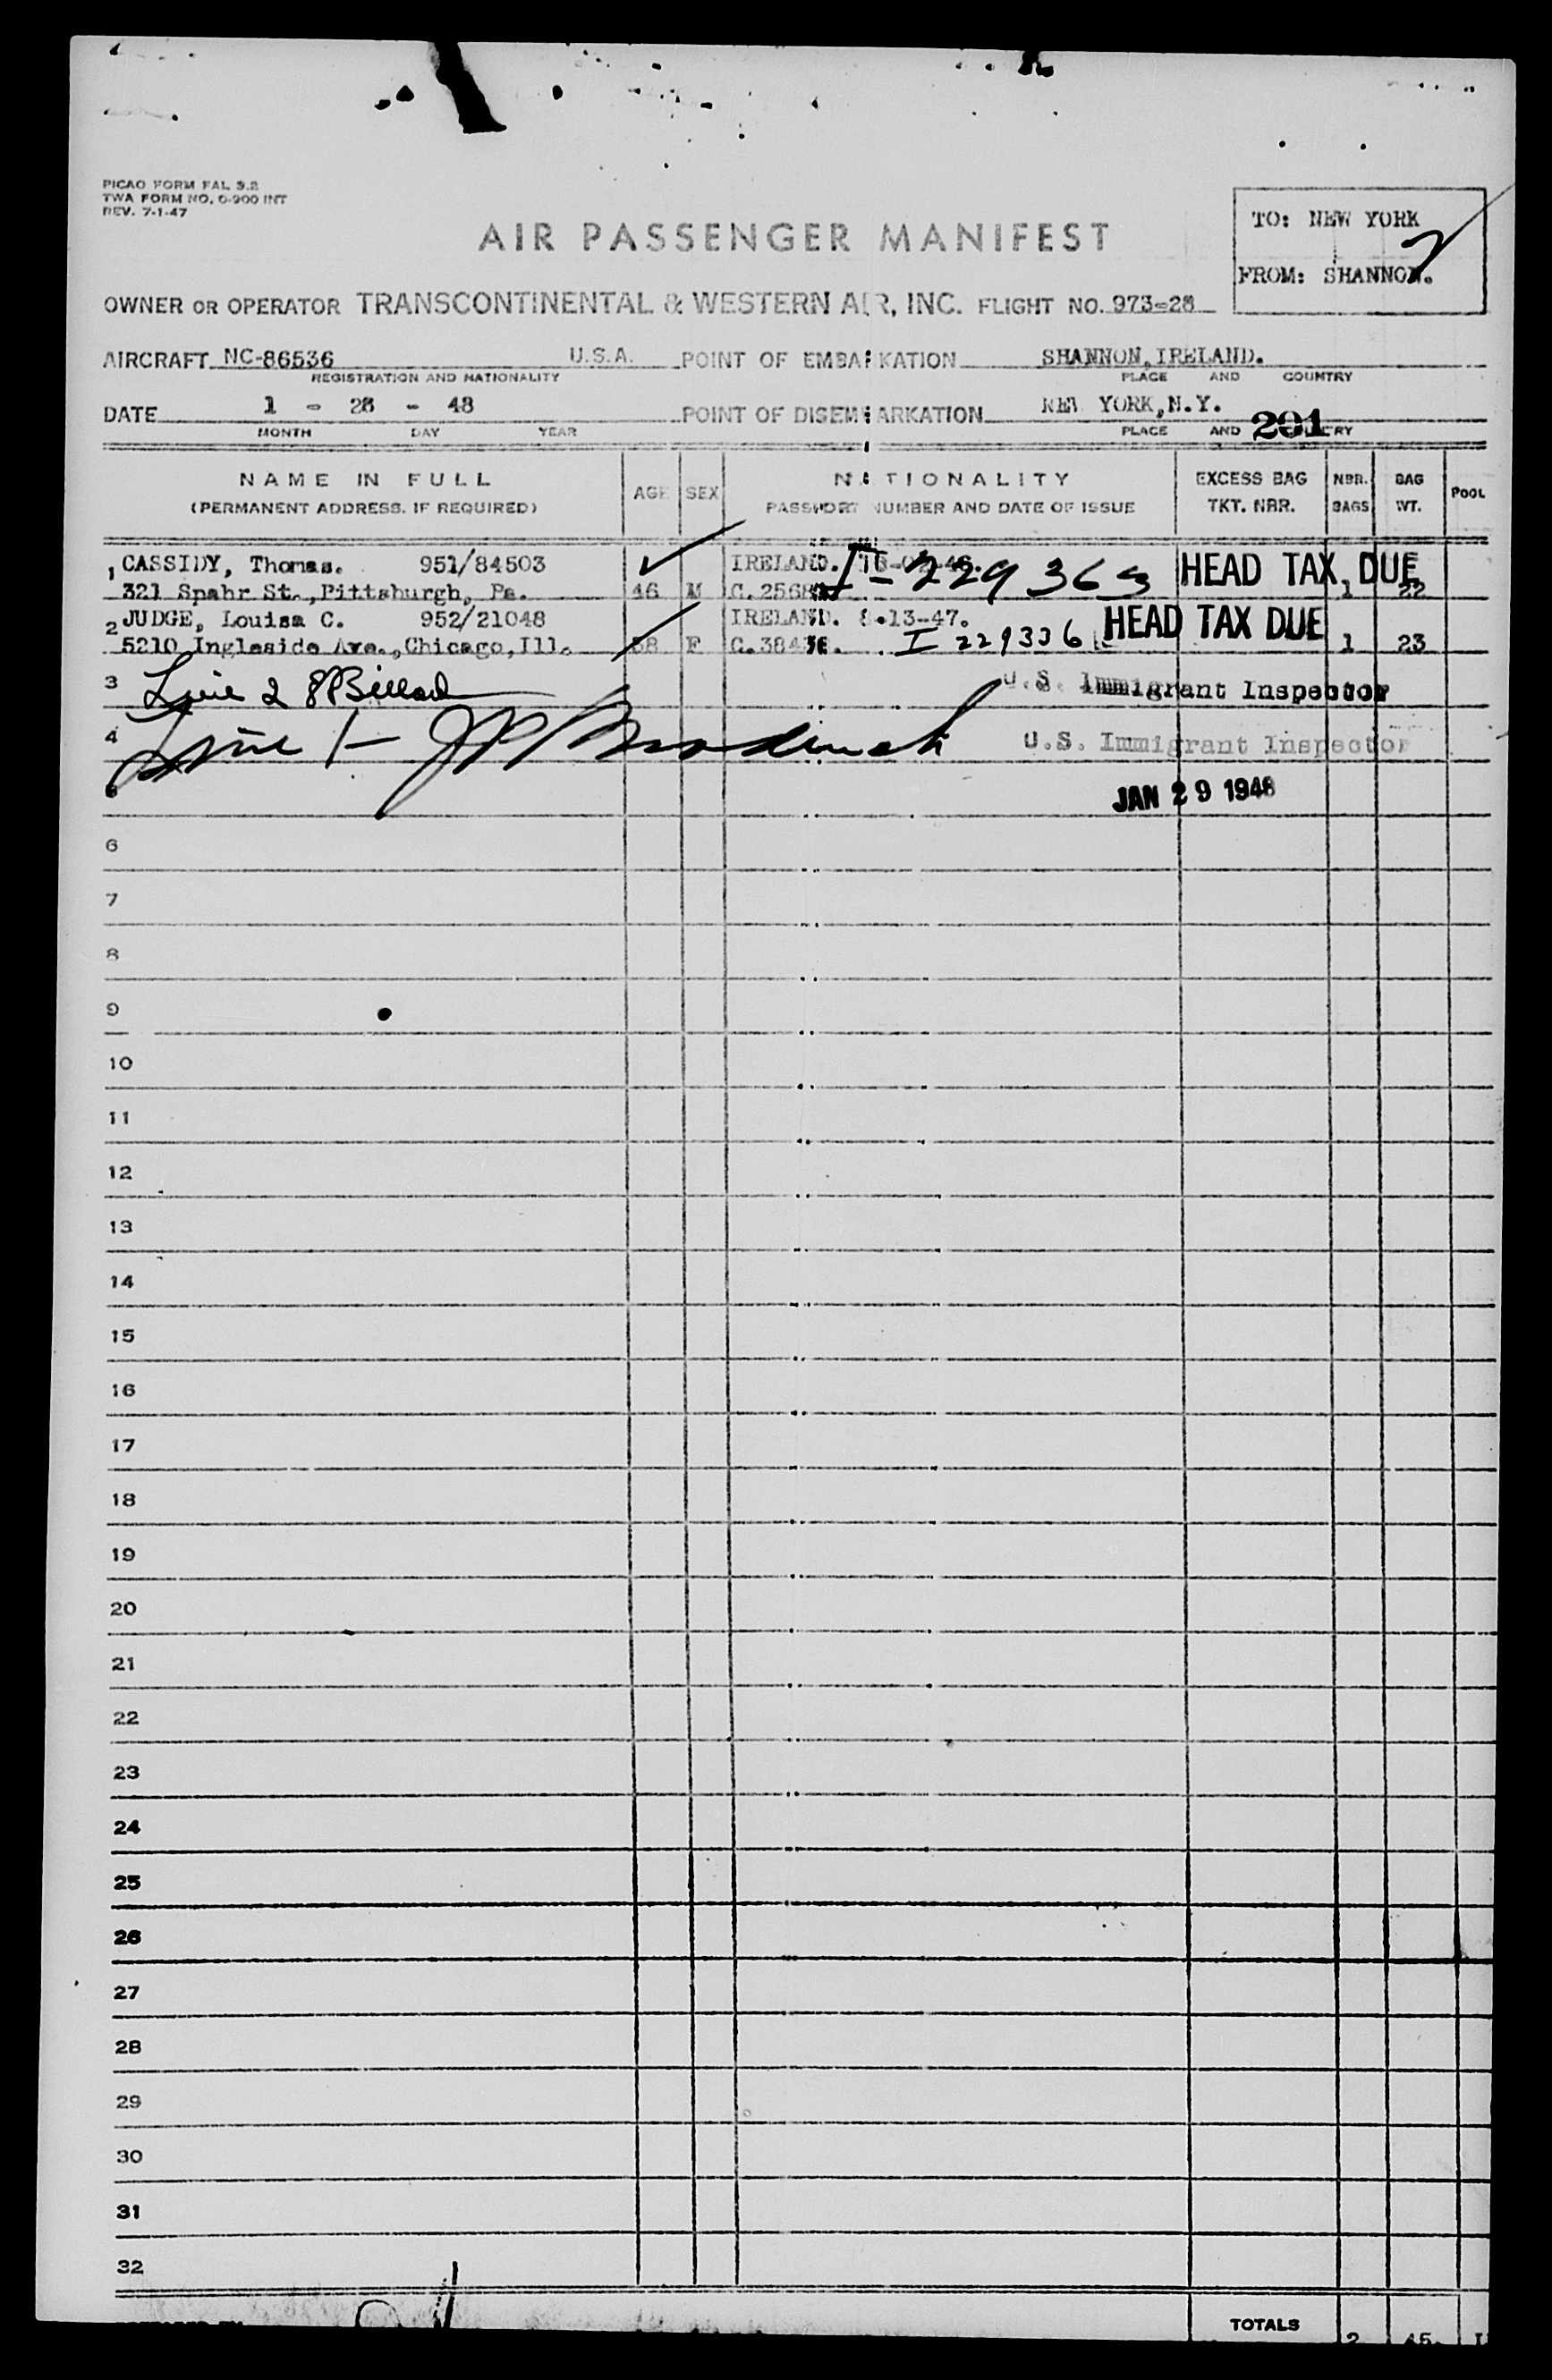 PICAO FORM FAL 3.2
TWA FORM NO. O-900 INT
REV. 7-1-47
TO: NEW YORK
FROM: SHANNON.
AIR PASSENGER MANIFEST
OWNER OR OPERATOR TRANSCONTINENTAL & WESTERN AIR, INC. FLIGHT NO. 973-28
AIRCRAFT NC-86536 U.S.A. POINT OF EMBARKATION SHANNON, IRELAND.
REGISTRATION AND NATIONALITY PLACE AND COUNTRY
DATE 1 - 28 - 48 POINT OF DISEMBARKATION NEW YORK, N.Y.
MONTH DAY YEAR PLACE AND 291
NAME IN FULL AGE SEX NATIONALITY EXCESS BAG NBR. BAG POOL
(PERMANENT ADDRESS. IF REQUIRED) PASSPORT NUMBER AND DATE OF ISSUE TKT. NBR. BAGS WT.
1 CASSIDY, Thomas. 951/84503 IRELAND. I-229363 HEAD TAX DUE
321 Spahr St., Pittsburgh, Pa. 46 M 1 22
2 JUDGE, Louisa C. 952/21048 IRELAND. 8-13-47. HEAD TAX DUE
5210 Ingleside Ave., Chicago, Ill. F I 229336 1 23
3 Line 2 U.S. Immigrant Inspector
4 Line 1 - U.S. Immigrant Inspector
JAN 29 1948
6
7
8
9
10
11
12
13
14
15
16
17
18
19
20
21
22
23
24
25
26
27
28
29
30
31
32
TOTALS 2 45